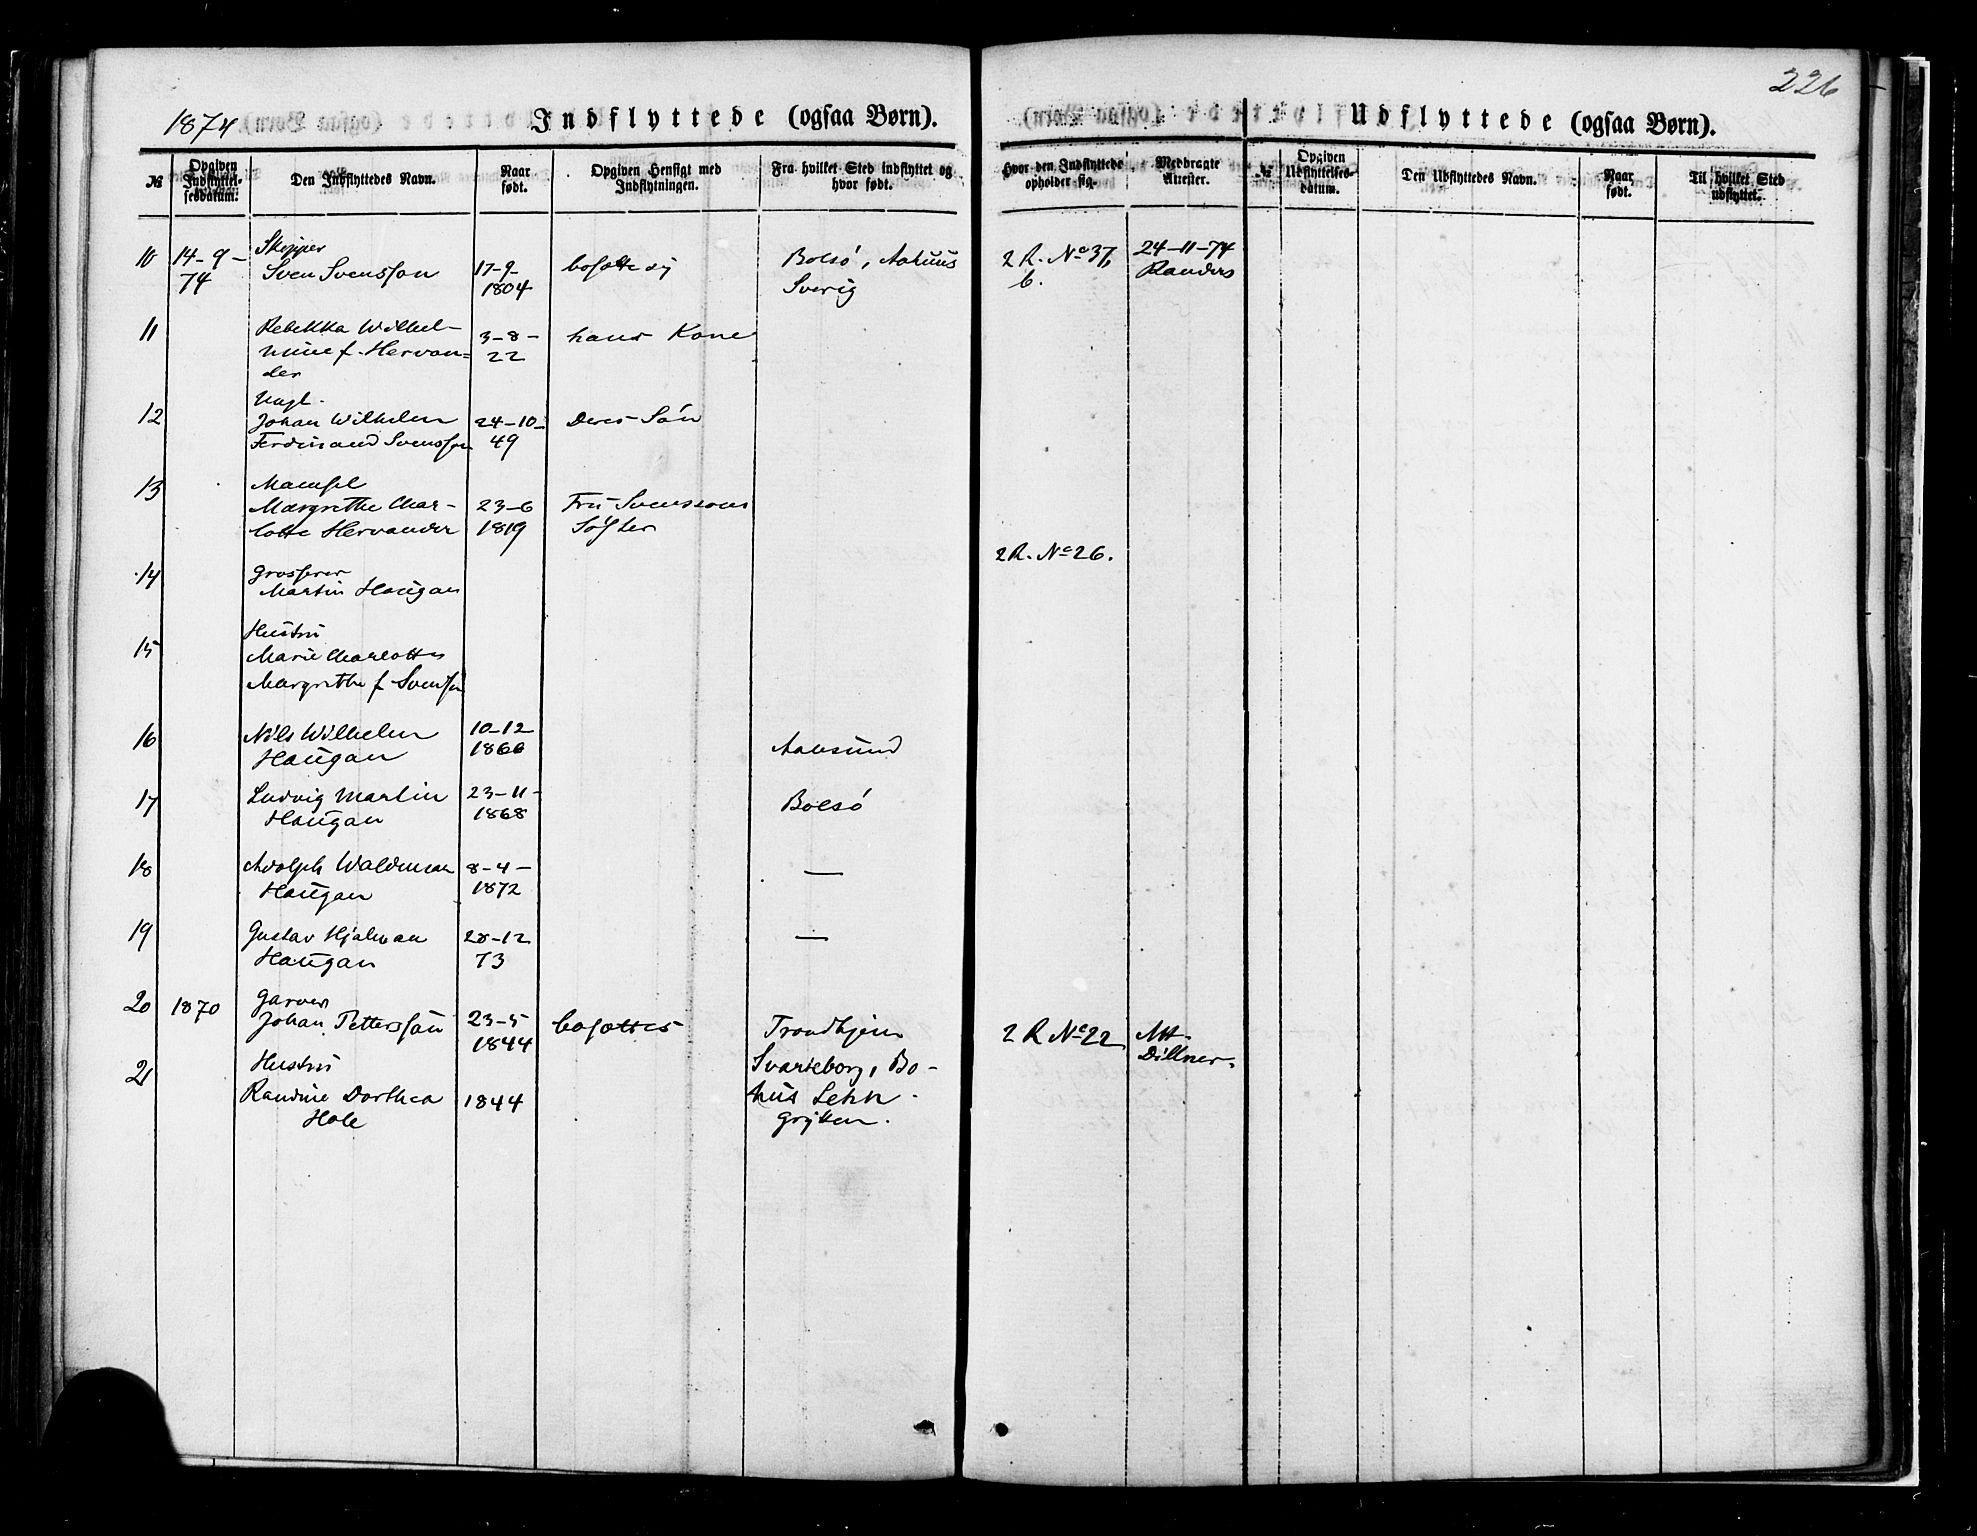 226
1874
Indflyttede (ogsaa Børn).
Udflyttede (ogsaa Børn).
№
Opgiven Indflyttelsesdatum.
Den Indflyttedes Navn.
Naar født.
Opgiven Hensigt med Indflytningen.
Fra hvilket Sted indflyttet og hvor født.
Hvor den Indflyttede opholder sig.
Medbragte Attester.
№
Opgiven Udflyttelsesdatum.
Den Udflyttedes Navn.
Naar født.
Til hvilket Sted udflyttet.
10 14-9-74 Skipper Sven Svensson 17-9-1804 bosætte sig Bolsö, Sverig 2 R. No 37 b. 24-11-74 Randers
11 Rebekka Wilhelmine f. Hervander 3-8-22 hans Kone
12 Ungk. Johan Wilhelm Ferdinand Svensson 24-10-49 Deres Sön
13 Mamsel Margrethe Charlotte Hervander 23-6 1819 Fru Svenssons Söster
2 R. No 26.
14 Grosserer Martin Haugan
15 Hustru Marie Charlotte Margrethe f. Svensson
16 Nils Wilhelm Haugan 10-12-1866 Aalesund
17 Ludvig Martin Haugan 23-11-1868 Bolsö
18 Adolph Waldemar Haugan 8-4-1872 —
19 Gustav Hjalmar Haugan 28-12 73 —
20 1870 Garver Johan Pettersson 23-5 1844 bosættes Trondhjem 2 R No 22 Att. Dillner.
Svarteborg, Bohus Lehn
21 Hustru Randine Dorthea Hole 1844 Grytten.